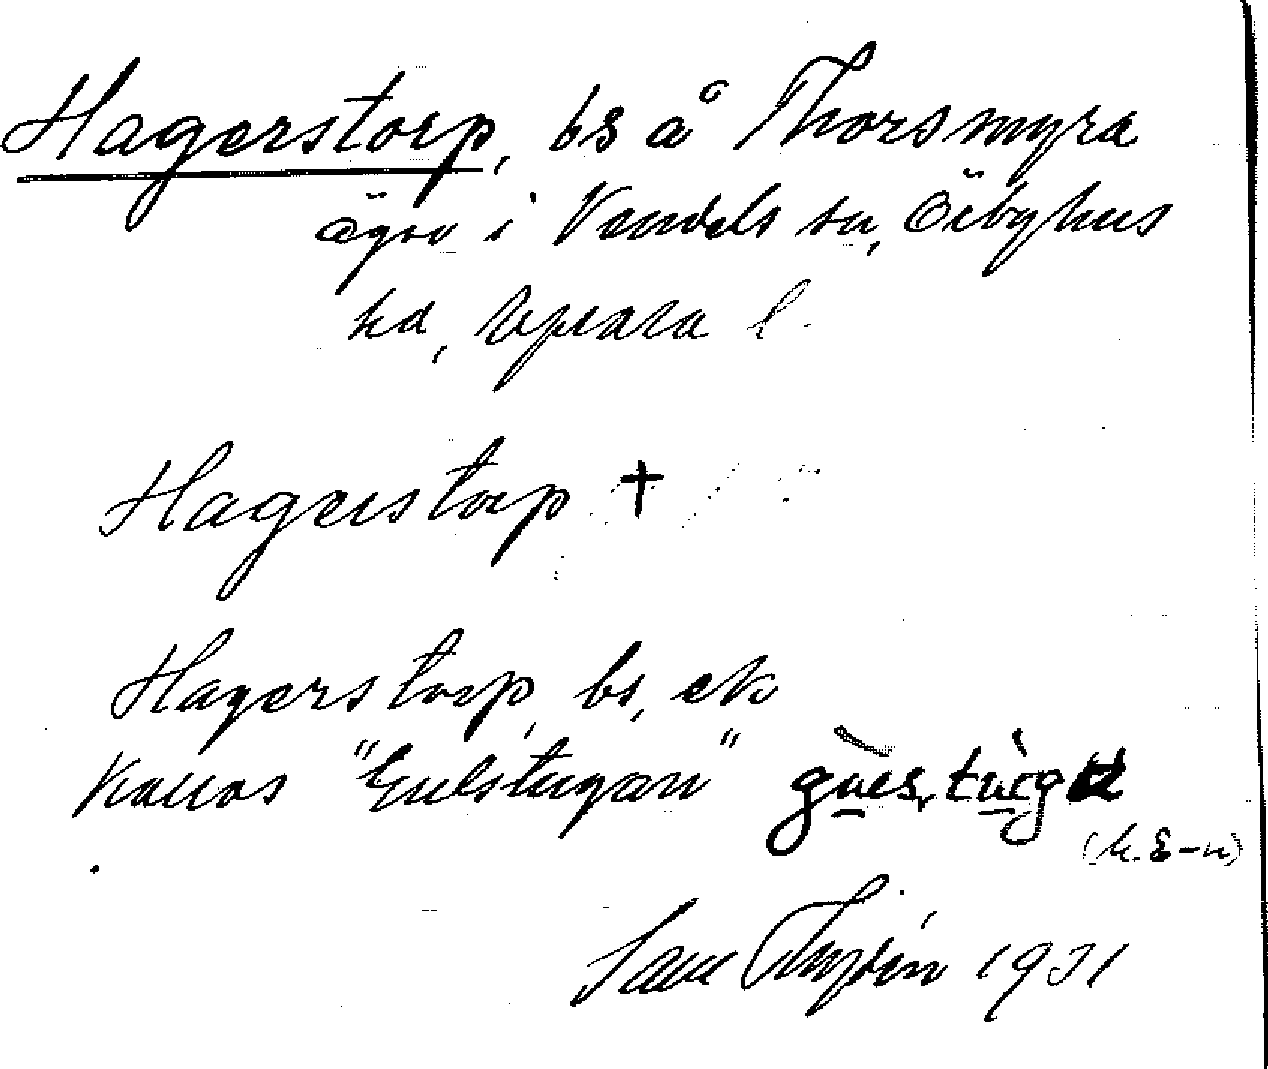 Hagerstorp, bs å Thorsmyra
ägor i Vendels sn, Örbyhus
hd, Upsala l.
Hagerstorp †
Hagerstorp, bs, ek
Kallas "Gulstugan"
(M. E-n)
Sam 1931